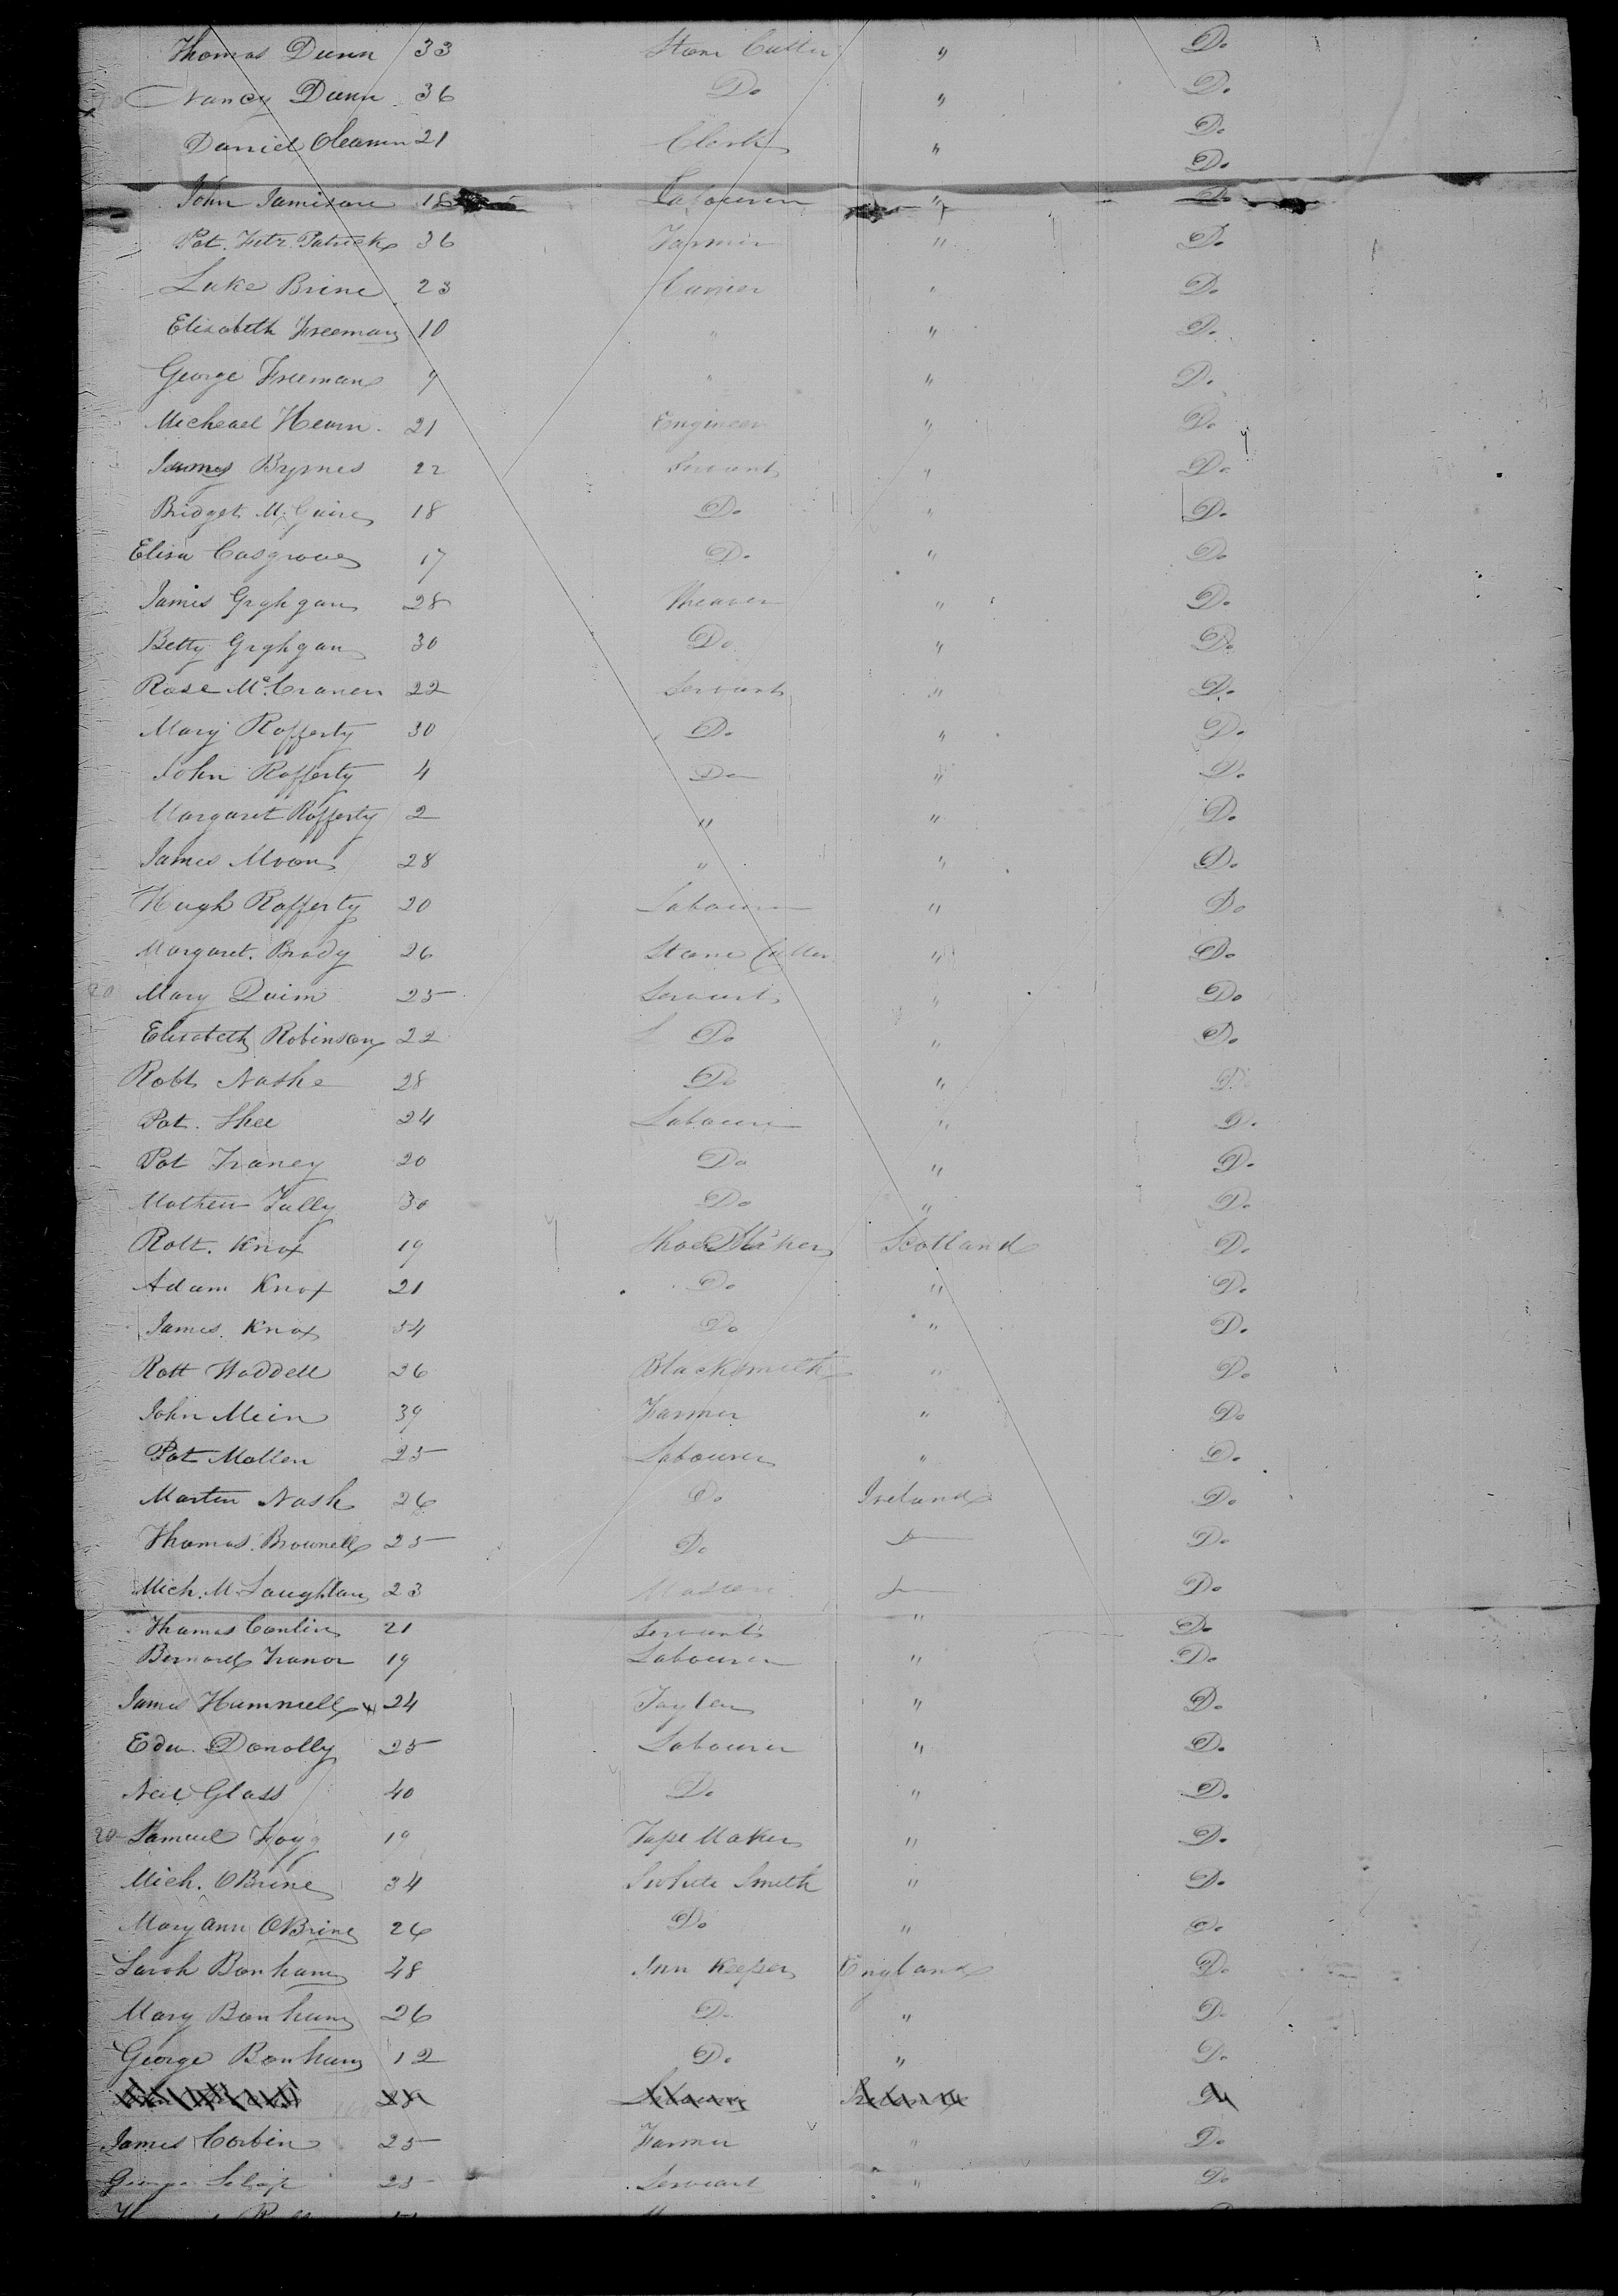 Thomas Dunn 33 Stone Cutter " Do
Nancy Dunn 36 Do " Do
Daniel 21 Clark " Do
Do
John Jamison 18 Labourer " Do
Pat. Fitz Patrick 36 Farmer " Do
Luke Brine 23 " Do
Elisabeth Freeman 10 " " Do
George Freeman 7 " " Do
Micheael Hearn 21 Engineer " Do
James Byrnes 22 Servant " Do
Bridget McGuire 18 Do " Do
Elisa Casgrove 17 Do " Do
James Grghgan 28 Weaver " Do
Betty Grghgan 30 Do " Do
Rose McCranen 22 Servant " Do
Mary Rafferty 30 Do " Do
John Rafferty 4 Do " Do
Margaret Rafferty 2 " " Do
James Moon 28 " " Do
Hugh Rafferty 20 Labourer " Do
Margaret Brady 26 Stone Cutter " Do
20 Mary Quim 25 Servant " Do
Elisabeth Robinson 22 Do " Do
Robt Nashe 28 Do " Do
Pat. Shee 24 Labourer " Do
Pat Traney 20 Do " Do
Mathew Tully 30 Do " Do
Robt. Knox 19 Shoe Maker Scotland Do
Adam Knox 21 Do " Do
James Knox 54 Do " Do
Robt Waddell 26 Blacksmith " Do
John Mein 39 Farmer " Do
Pat Mallen 25 Labourer " Do
Martin Nash 26 Do Ireland Do
Thomas Brownell 25 Do Do
Mich. McLaughlan 23 Mason Do
Thomas Conlin 21 Servant " Do
Bernard Tranor 19 Labourer " Do
James Hammell 24 Tayler " Do
Edw. Donolly 25 Labourer " Do
Neil Glass 40 Do " Do
20 Samuel 19 Tape Maker " Do
Mich. OBrine 34 White Smith " Do
Mary Ann OBrine 26 Do " Do
Sarah Bonham 48 Inn Keeper England Do
Mary Bonham 26 Do " Do
George Bonham 12 Do " Do
28 Labourer Ireland Do
James Corbin 25 Farmer " Do
George 25 Servant " Do